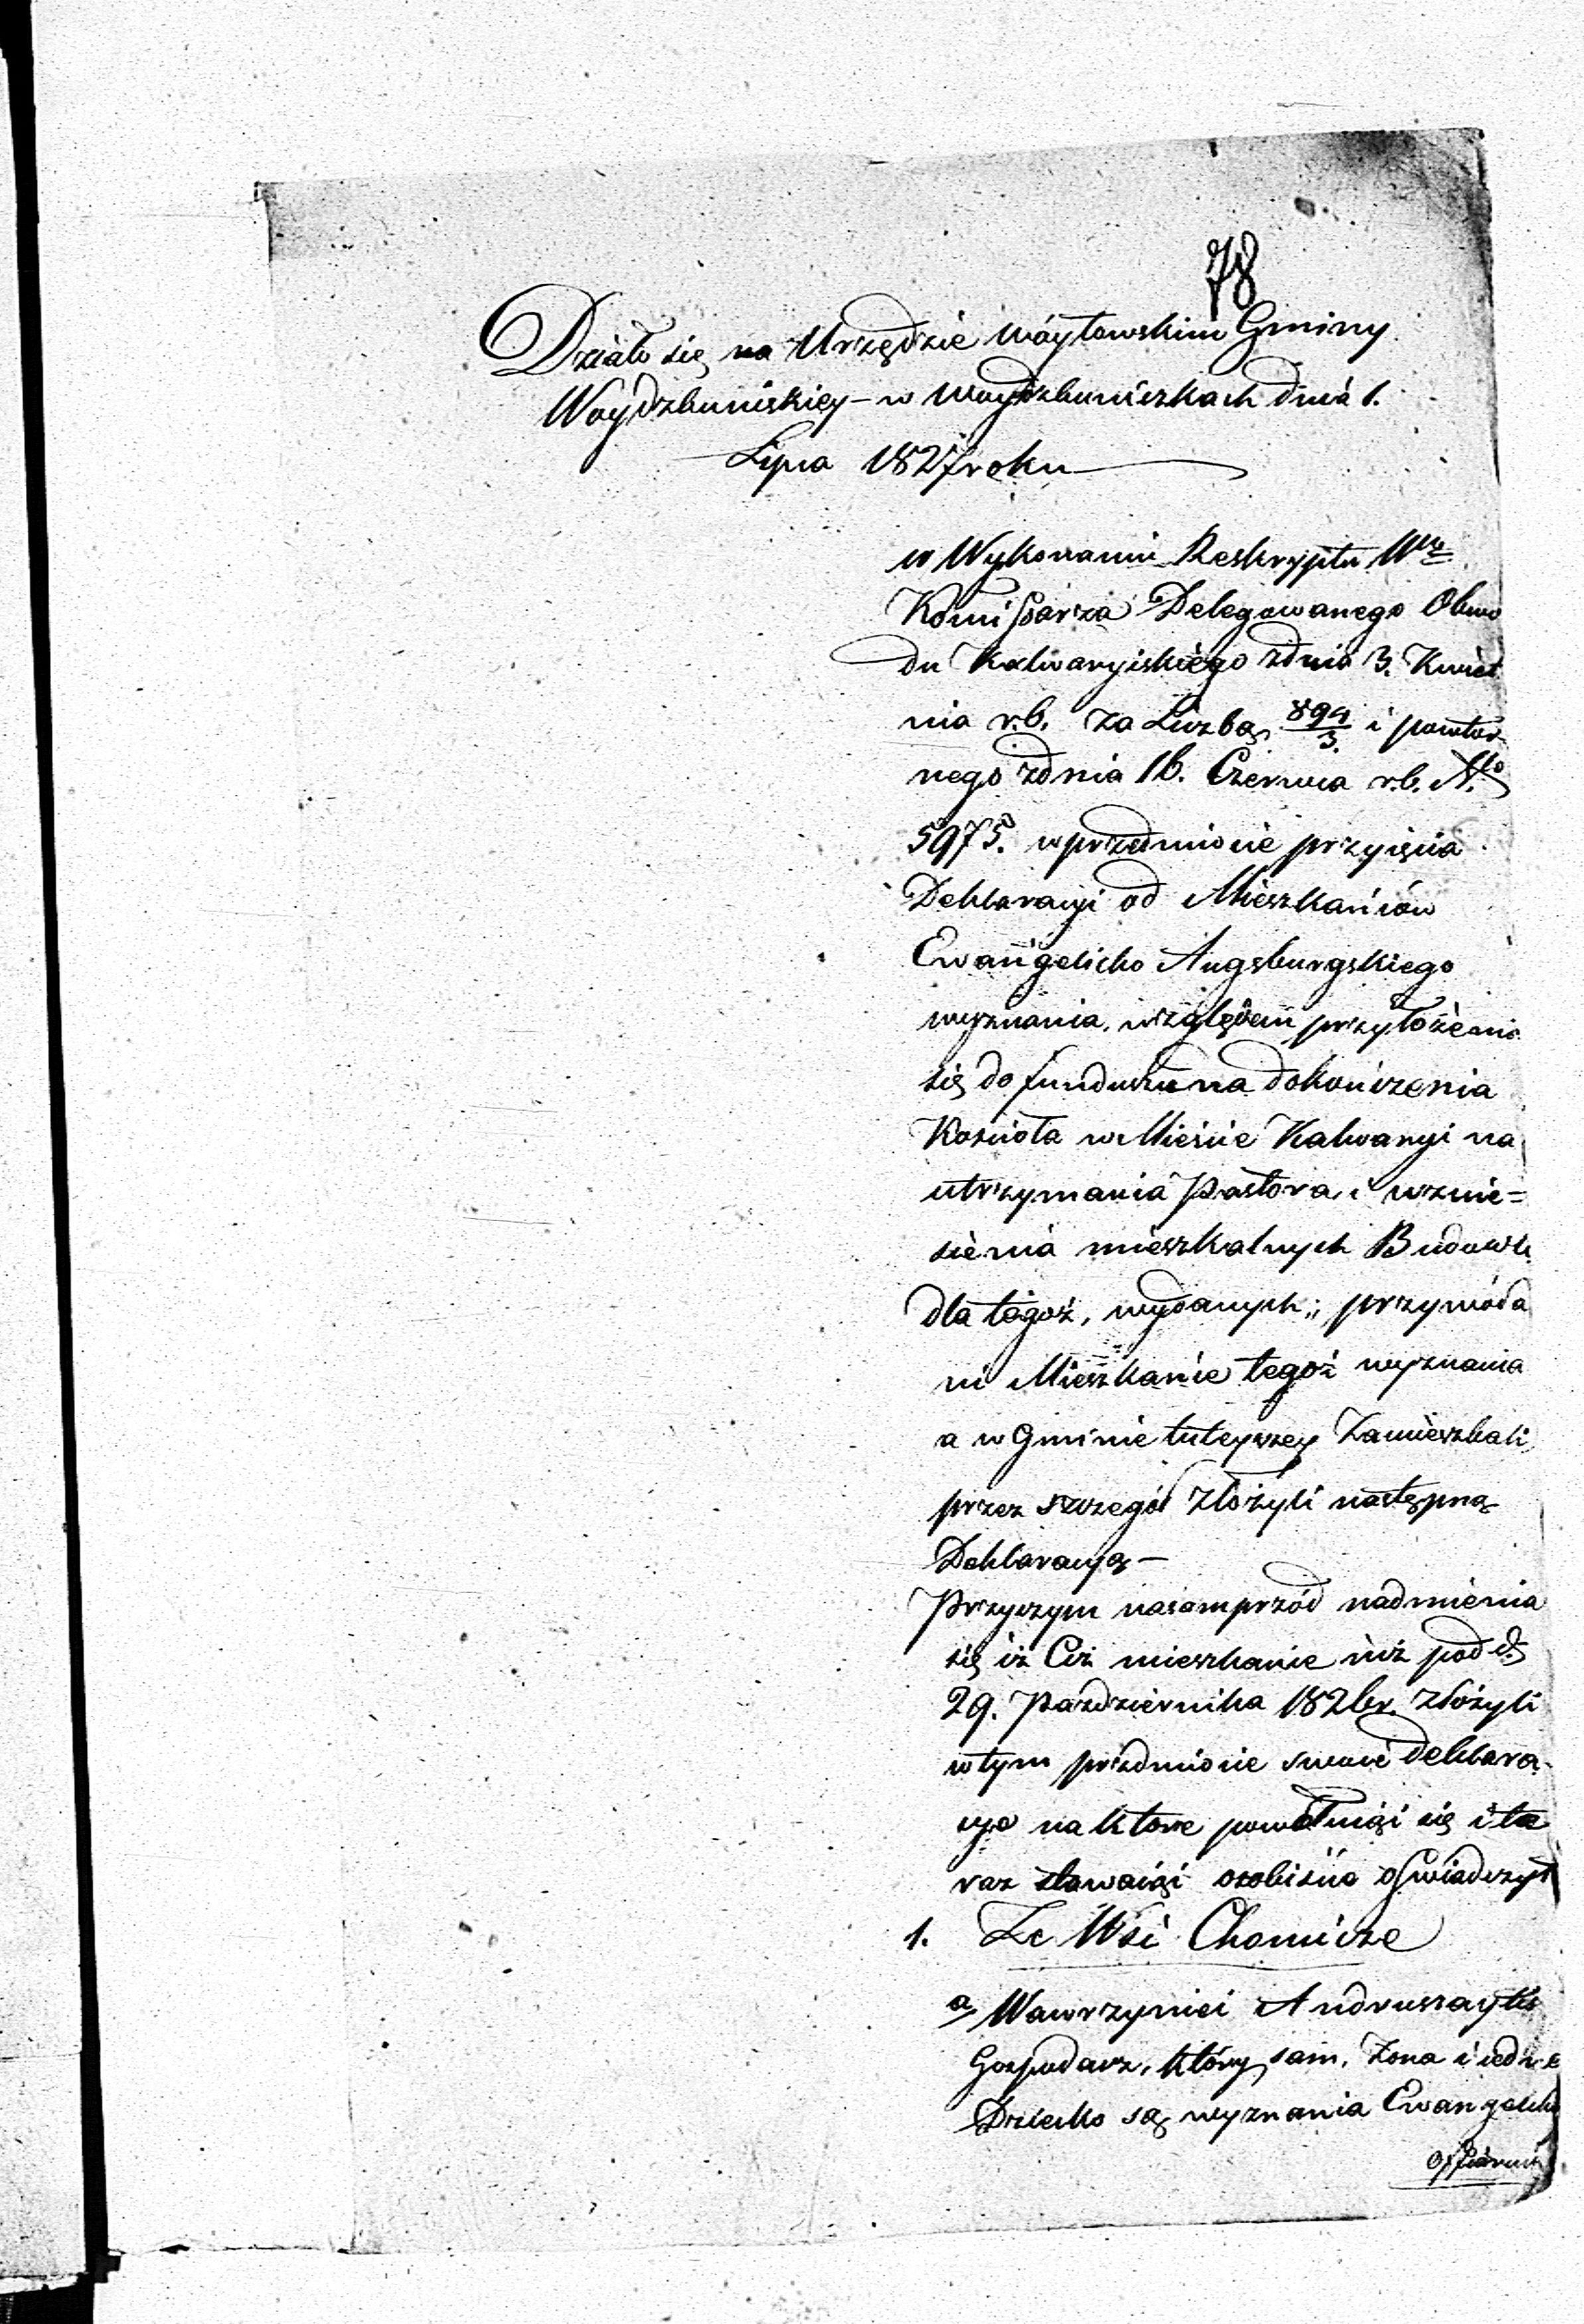 78
Działo się na Urzędzie Wóytowskim Gminy
Woydzbuniskiey – w Woydzbuniszkach dnia 1.
Lipca 1827 roku
w Wykonaniu Reskryptu Wgo
Kommissarza Delegowanego Obwo
du Kalwaryiskiego z dnia 3. Kwiet
nia r.b. za Liczbą 894/3. i powtor
nego z dnia 16. Czerwca r.b. No
5975. w przedmiocie przyięcia
Deklaracyi od Mieszkańców
Ewangelicko Augsburgskiego
wyznania, względem przyłożenia
się do funduszu na dokończenia
Kościoła w Mieście Kalwaryi na
utrzymania Pastora, i wznie=
sienia mieszkalnych Budowli
dla tegoż, wydanych;
ni Mieszkańce tegoż wyznania
a w Gminie tuteyszey Zamieszkali
przez szczegół złożyli następną
Deklaracyą –
Przyczym nasamprzód nadmienia
się iż Ciż mieszkańce iuż pod d.
29. Pazdziernika 1826 r. złożyli
w tym przedmiocie swoie deklara
cye na ktore powołuiąc się i te
raz stawaiąc osobiście oświadczyli
1. Ze Wsi Chomicze
a, Wawrzyniec Andruszaytis
Gospodarz, który sam, Zona i iedne
Dziecko są wyznania Ewangelicko